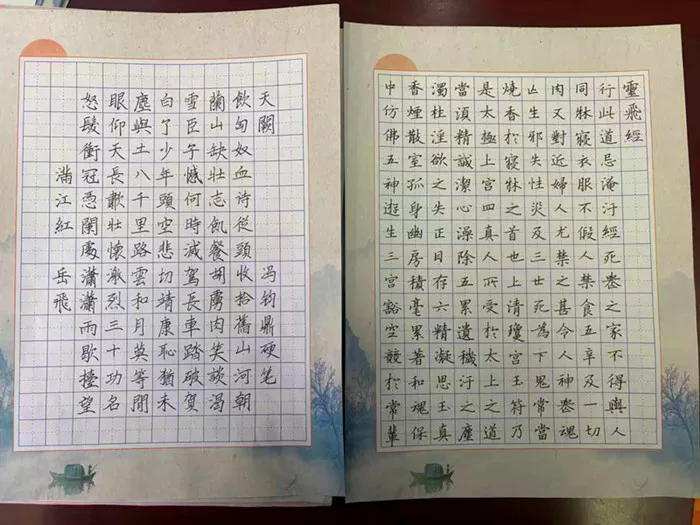 滿江紅 岳飛
怒髮衝冠憑闌處瀟瀟雨歇檯望
眼仰天長歗壯懷激烈三十功名
塵與土八千里路雲和月莫等閒
白了少年頭空悲切靖康恥猶未
雪臣子憾何時滅駕長車踏破賀
蘭山缺壯志飢餐胡虜肉笑談渴
飲匈奴血诗從頭收拾舊山河朝
天闕 冯鈞鼎硬笔
靈飛經
行此道忌淹汙經死喪之家不得與人
同牀寢衣服不假人禁食五辛及一切
肉又對近婦人尤禁之甚令人神喪魂
亾生邪失性災及三世死為下鬼常當
燒香於寢牀之首也上清瓊宮玉符乃
是太極上宮四真人所受於太上之道
當須精誠潔心澡除五累遺穢汙之塵
濁杜淫欲之失正目存六精凝思玉真
香煙散室孤身幽房積毫累著和魂保
中仿佛五神遊生三宮豁空競於常輩